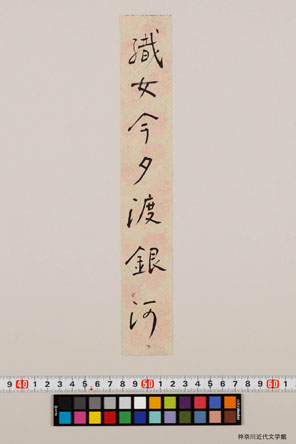 織女今夕渡銀河
9 40 1 2 3 4 5 6 7 8 9 50 1 2 3 4 5 6 7 8 9 60 1 2
神奈川近代文学館